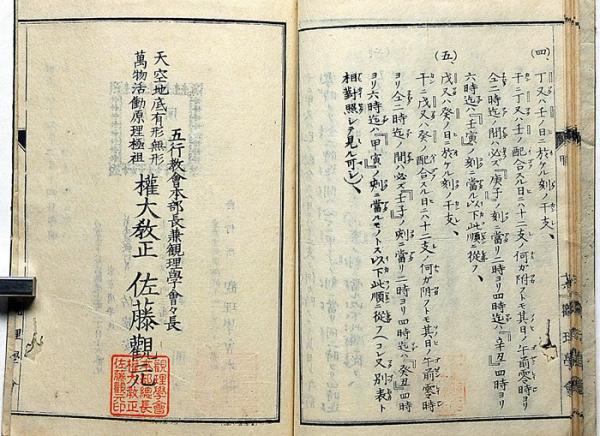 (四)、丁又ハ壬ノ日ニ於ケル刻ノ干支、
干ニ丁又ハ壬ノ配合スル日ニハ十二支ノ何ガ附フトモ其日ノ午前零時ヨリ
仝二時迄ノ間ハ必ズ『庚子』ノ刻ニ當リ二時ヨリ四時迄ハ『辛丑』四時ヨリ
六時迄ハ『壬寅』ノ刻ニ當ル以下此順ニ從フ、
(五)、戊又ハ癸ノ日ニ於ケル刻ノ干支、
干ニ戊又ハ癸ノ配合スル日ニハ十二支ノ何ガ附フトモ其日ノ午前零時
ヨリ仝二時迄ノ間ハ必ズ『壬子』ノ刻ニ當リ二時ヨリ四時迄ハ『癸丑』四時
ヨリ六時迄ハ『甲寅』ノ刻ニ當ルモノトス以下此順ニ從フ(コレ又別表ト
相對照シテ見ル可シ)、
天空地底有形無形
萬物活動原理極祖
五行教會本部長兼觀理學會々長
權大教正 佐藤觀元
觀理學會
權大教正
佐藤觀元印